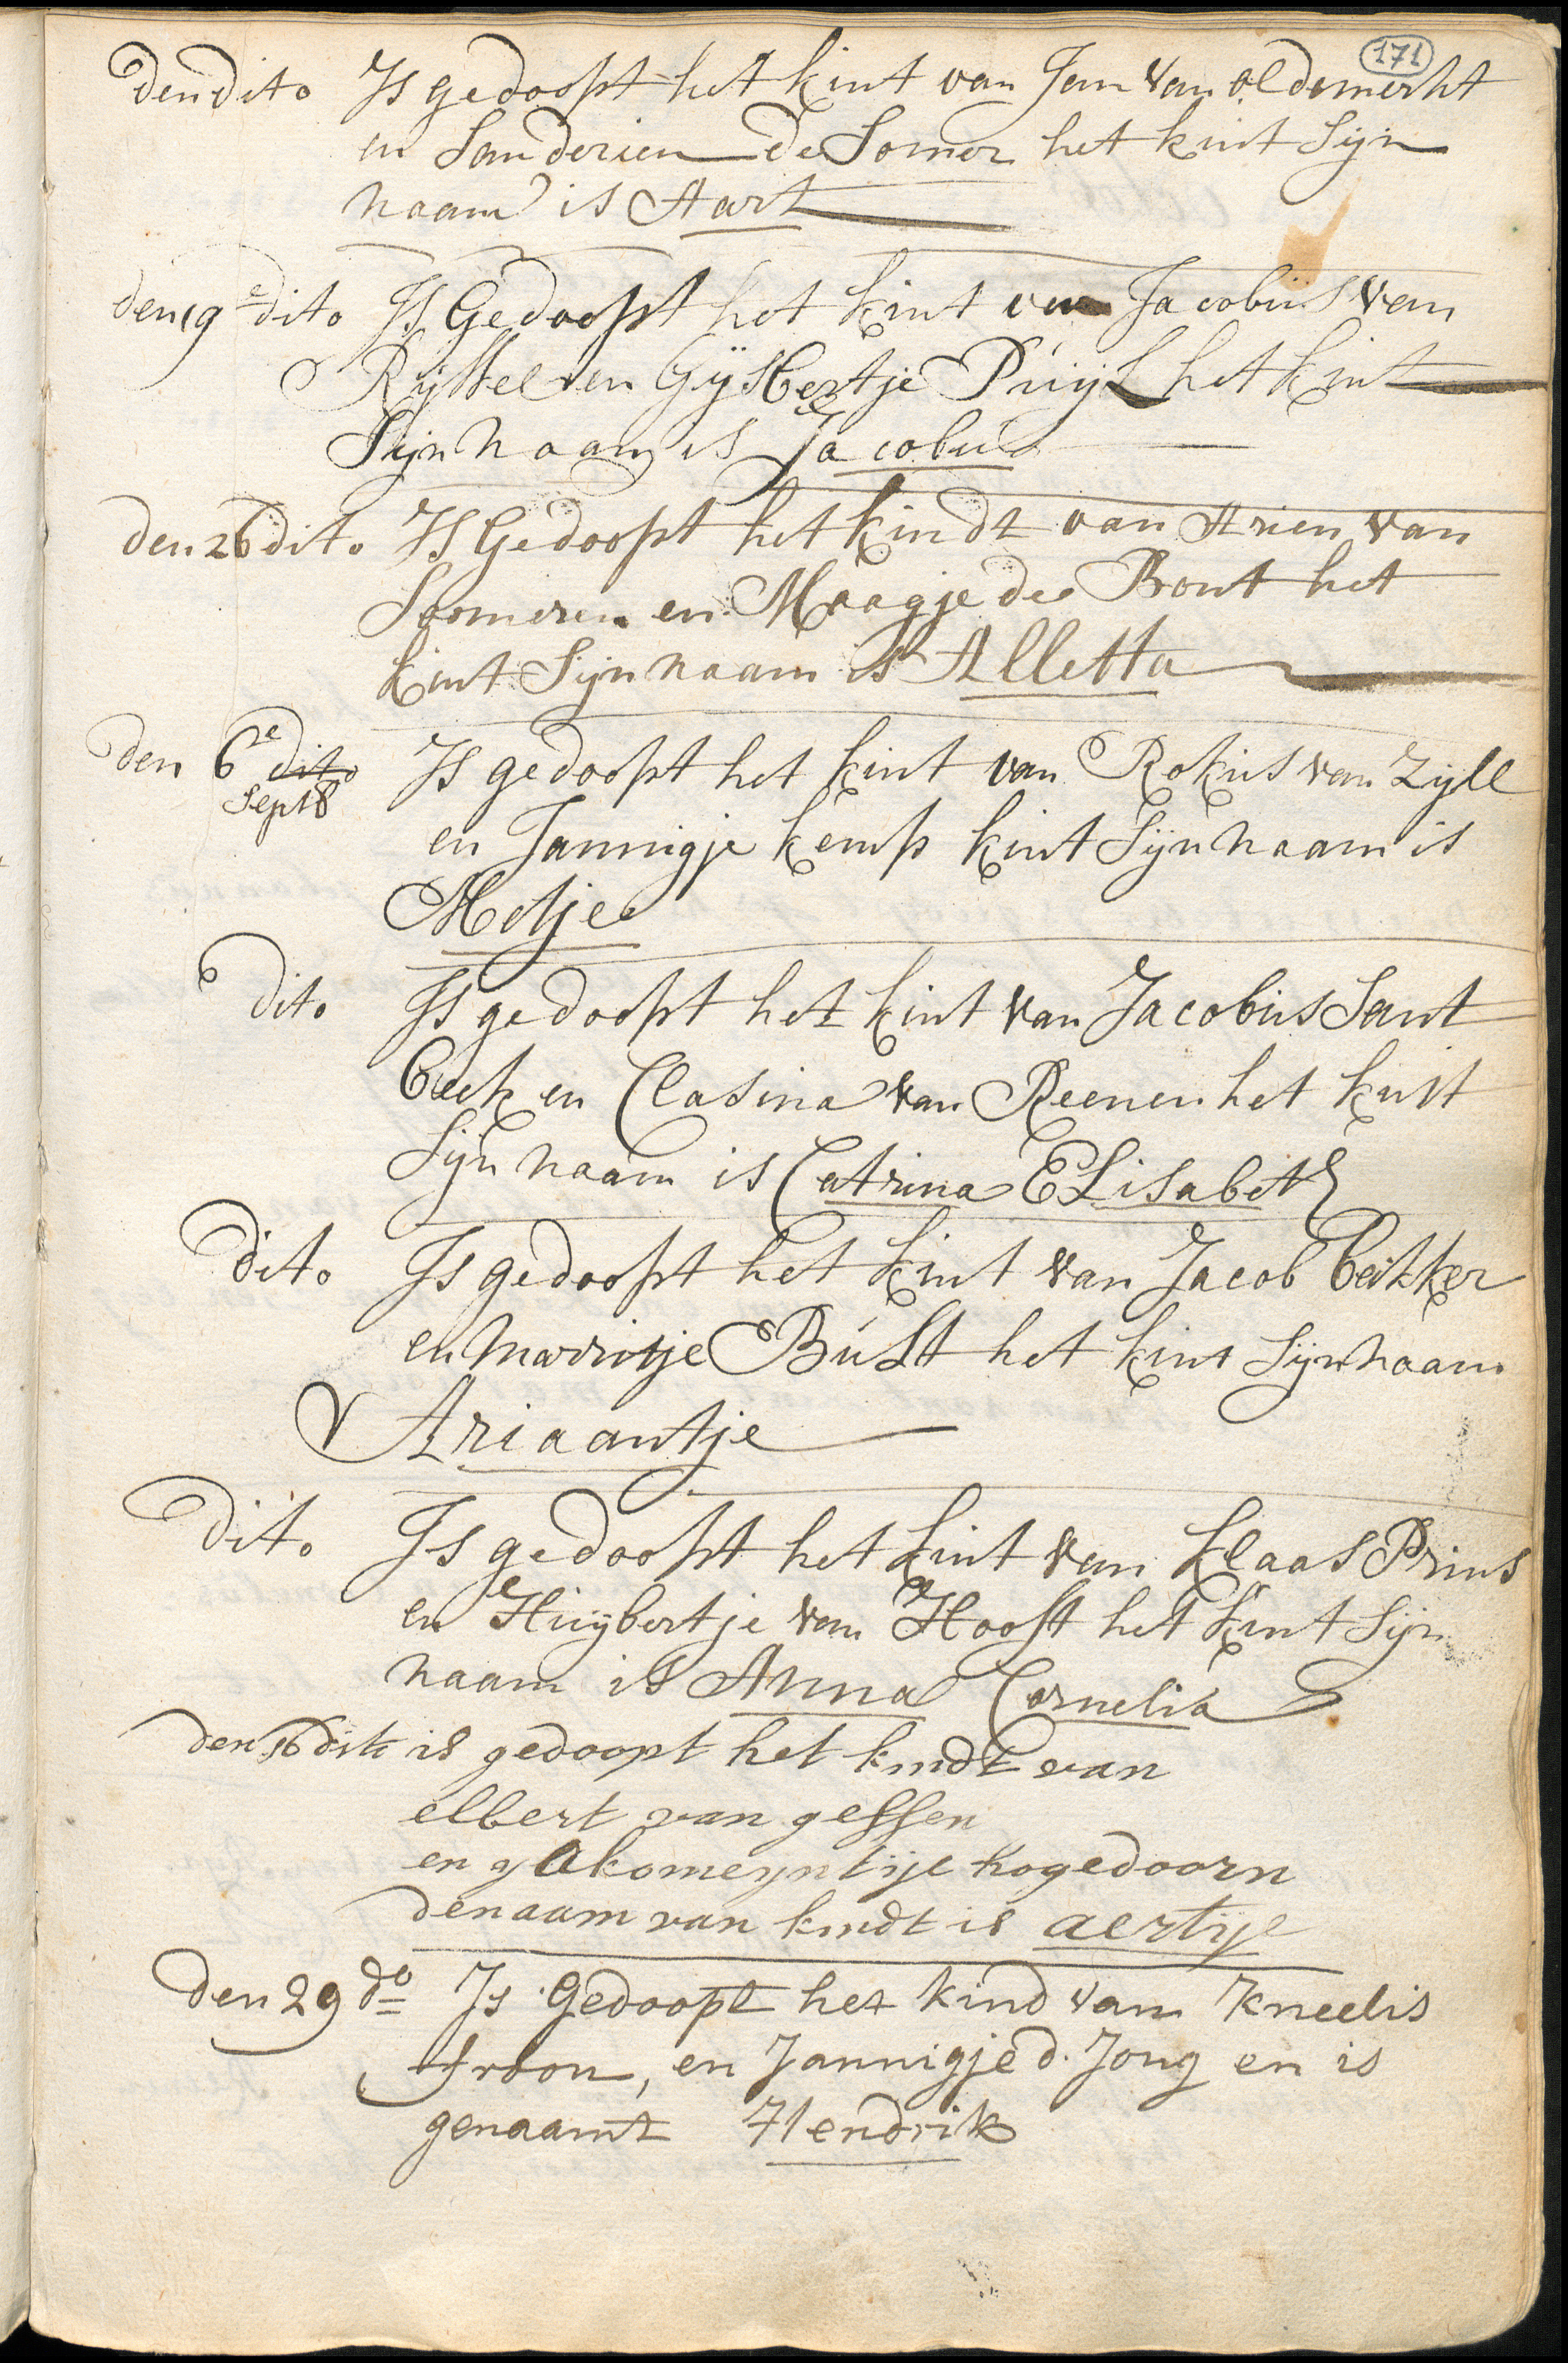 171
den dito Is gedoopt het kint van Jan van oldemerht
en Sanderien de Somer het kint Sijn
naam is Aart
den 19e dito Is Gedoopt het kint van Jacobus van
Rijssel en Gijsbertje Puijl het kint
Sijn naam is Jacobus
den 26 dito Is Gedoopt het kindt van Arien van
Someren en Maagje de Bont het
kint Sijn naam is Alletta
den 6e dito Is gedoopt het kint van Rokus van Zijll
Sept8
en Jannigje kemp kint Sijn naam is
Metje
dito Is gedoopt het kint van Jacobus Sant
beek en Clasina van Reenen het kint
Sijn naam is Catrina ELisabeth
dito Is gedoopt het kint van Jacob bakker
en marritje Bult het kint Sijn naam
Ariaantje
dito Is gedoopt het kint van klaas Prins
en Huijbertje van Hooft het kint Sijn
naam is Anna Cornelia
den 16 dito is gedoopt het kindt van
elbert van gessen
en jakomeyntije hogedoorn
de naam van kindt is aertije
den 29 do Is Gedoopt het kind van Kneelis
en Jannigje d. Jong en is
genaamt Hendrik